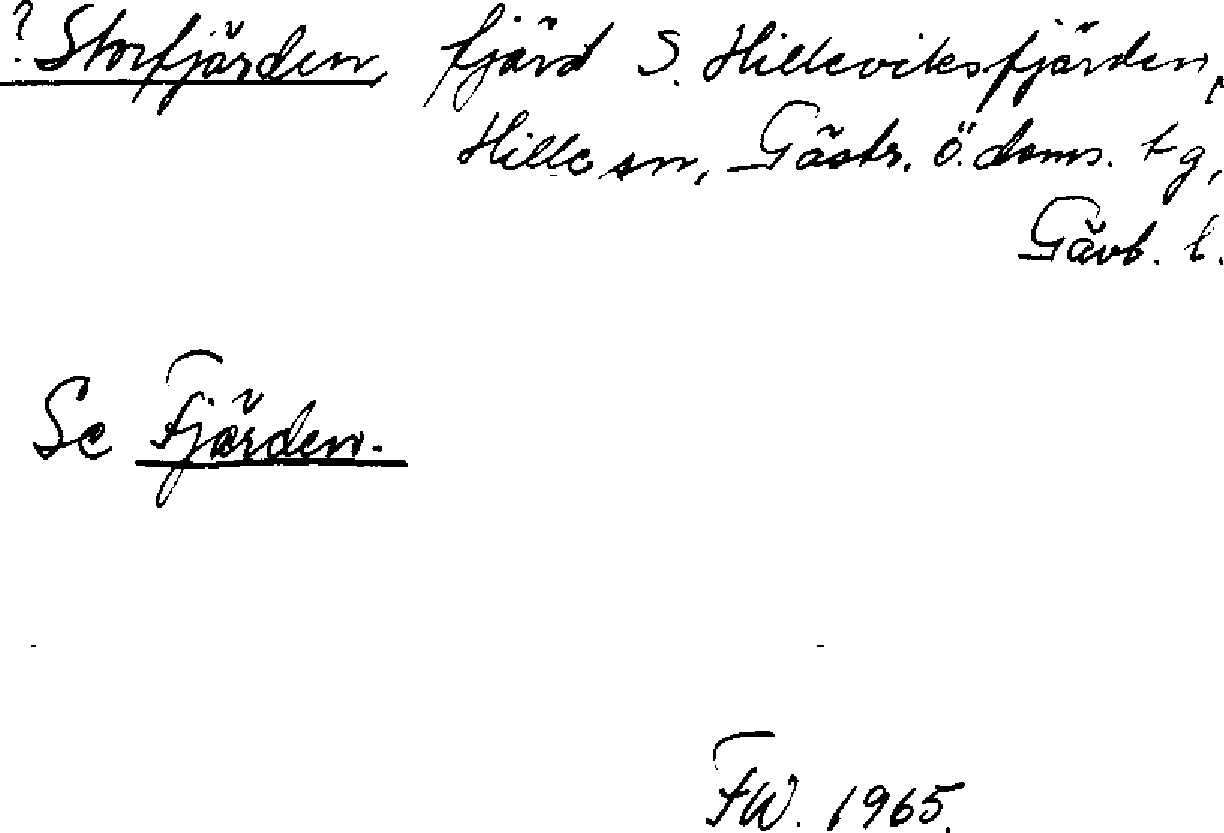 ? Storfjärden, fjärd S. Hilleviksfjärden,
Hille sn, Gästr. Ö. doms. tg,
Gävb. l.
Se Fjärden.
FW. 1965.